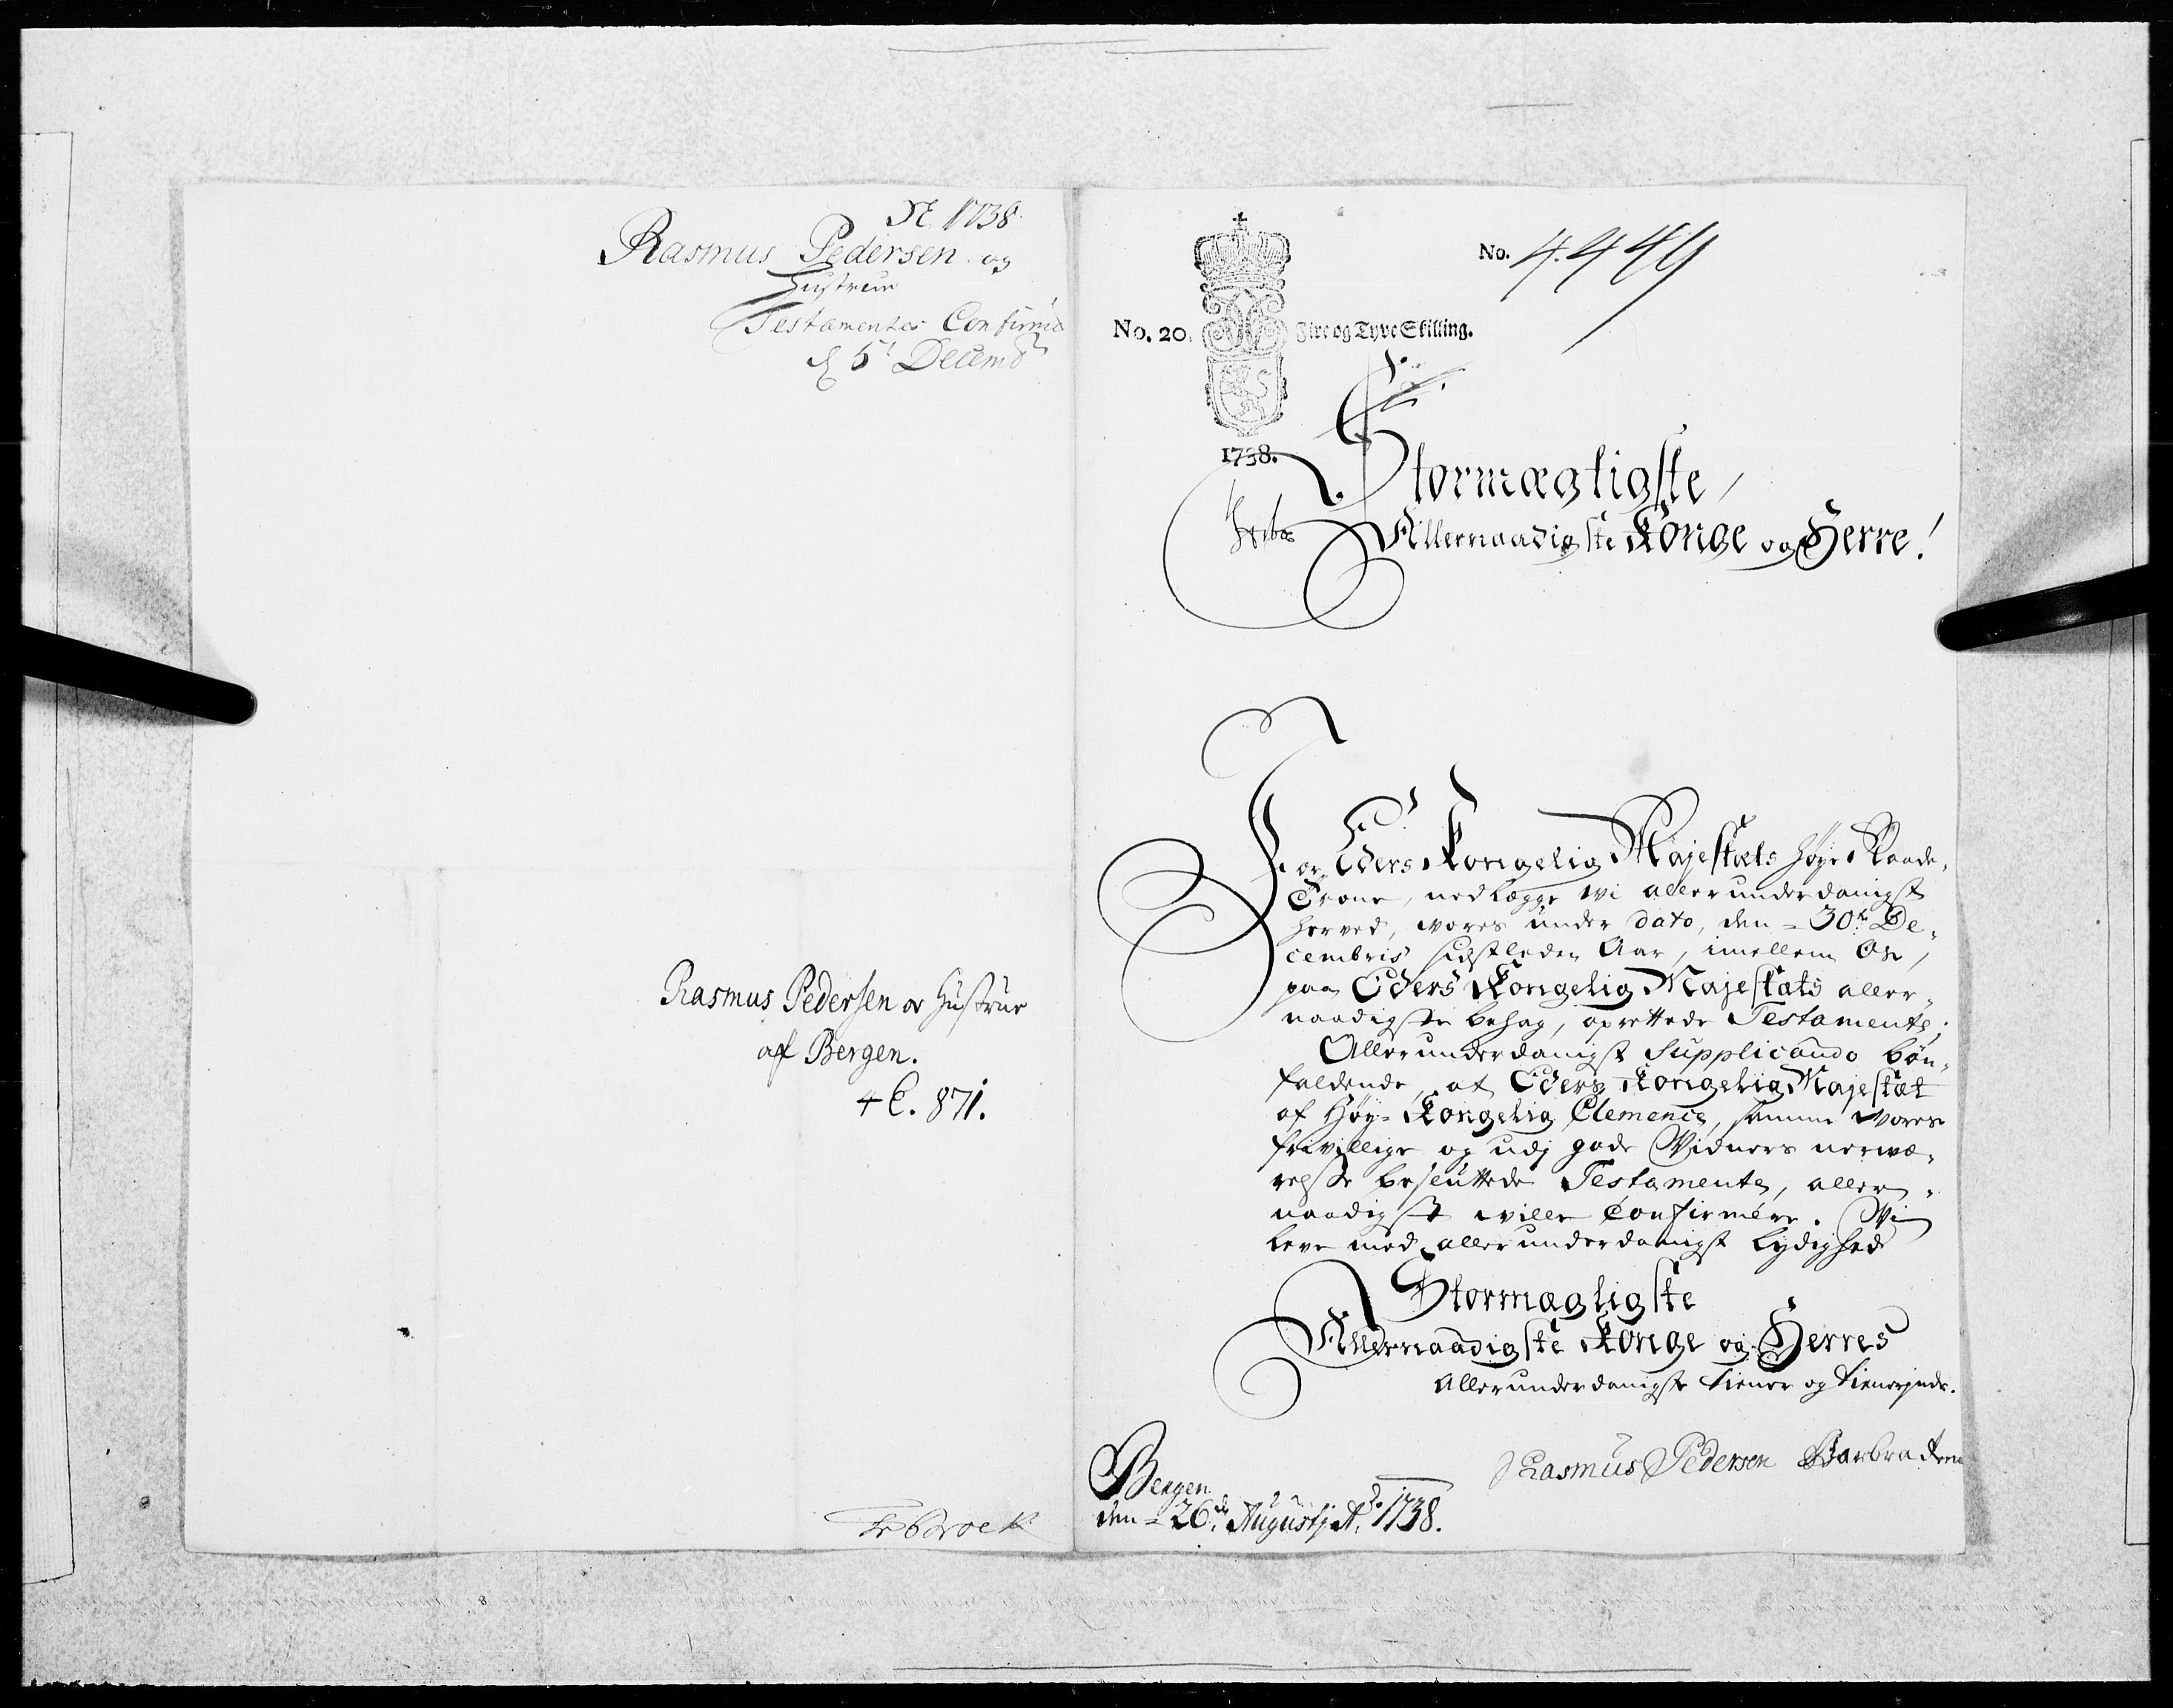 1738
Rasmus Pedersen og
Hustrue
Testamentes Confirma
d 5t Decemb
Rasmus Pedersen og Hustrue
af Bergen.
4 C. 871.
No. 4449
No. 20. Fire og Tyve Skilling.
1738.
Stormægtigste
Allernaadigste Konge og Herre!
For Eders Kongelig Majestæts høye Naade-
Trone, nedlægge wi allerunderdanigst
herved, vores under dato, den 30te De-
cembris sidstleden Aar, imellem Os,
paa Eders Kongelig Majestæts aller-
naadigste behag, oprettede Testamente;
Allerunderdanigst Supplicando bøn-
faldende, at Eders Kongelig Majestæt
af Høy-Kongelig Clemence, samme vores
frivillige og udj gode Vidners nerwæ-
relse besluttede Testamente, aller-
naadigst wille Confirmere. Wi
leve med allerunderdanigst lydighed
Stormægtigste
Allernaadigste Konge og Herres
Allerunderdanigste tiener og tienerinde.
Rasmus Pedersen Barbra
Bergen
den 26de Augusty Ao 1738.